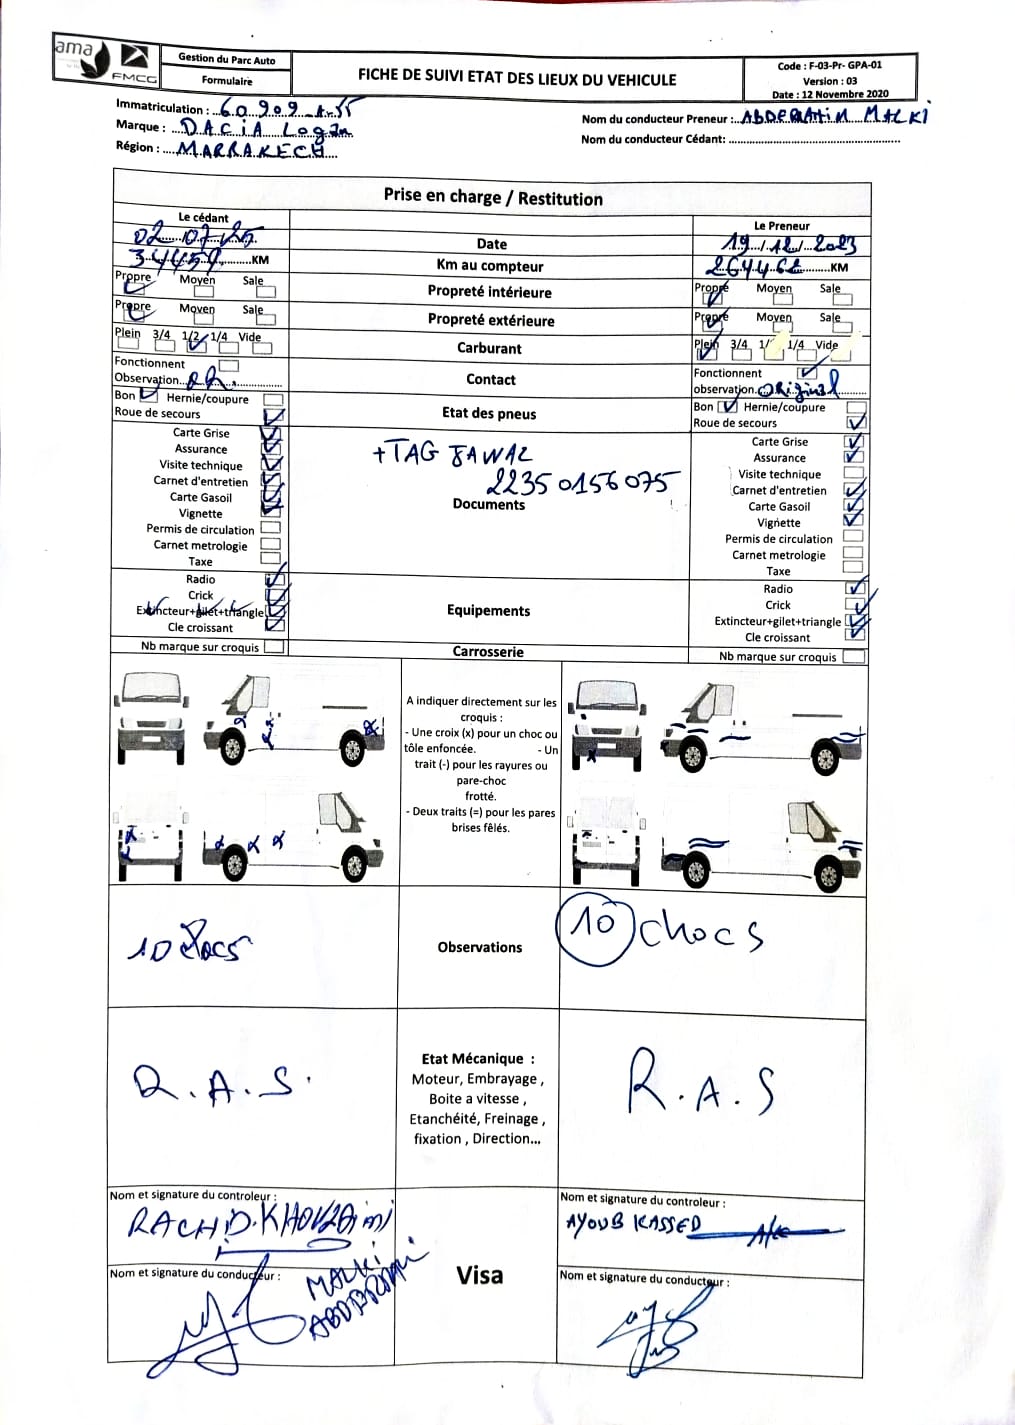 ama
FMCG
Gestion du Parc Auto
Formulaire
FICHE DE SUIVI ETAT DES LIEUX DU VEHICULE
Code : F-03-Pr- GPA-01
Version : 03
Date : 12 Novembre 2020
Immatriculation : 60909 A-55
Marque : DACIA Logan
Région : MARRAKECH
Nom du conducteur Preneur : ABDERRAHIM MALKI
Nom du conducteur Cédant:
Prise en charge / Restitution
Le cédant
Le Preneur
02 07 25
Date
19/12/2023
KM
Km au compteur
264462 KM
Propre Moyen Sale
Propreté intérieure
Propre Moyen Sale
Propre Moyen Sale
Propreté extérieure
Propre Moyen Sale
Plein 3/4 1/2 1/4 Vide
Carburant
Plein 3/4 1/ 1/4 Vide
Fonctionnent
Observation
Contact
Fonctionnent
observation original
Bon Hernie/coupure
Roue de secours
Etat des pneus
Bon Hernie/coupure
Roue de secours
Carte Grise
Assurance
Visite technique
Carnet d'entretien
Carte Gasoil
Vignette
Permis de circulation
Carnet metrologie
Taxe
+TAG JAWAZ
22350156075
Documents
Carte Grise
Assurance
Visite technique
Carnet d'entretien
Carte Gasoil
Vignette
Permis de circulation
Carnet metrologie
Taxe
Radio
Crick
Extincteur+gilet+triangle
Cle croissant
Equipements
Radio
Crick
Extincteur+gilet+triangle
Cle croissant
Nb marque sur croquis
Carrosserie
Nb marque sur croquis
A indiquer directement sur les
croquis :
- Une croix (x) pour un choc ou
tôle enfoncée. - Un
trait (-) pour les rayures ou
pare-choc
frotté.
- Deux traits (=) pour les pares
brises fêlés.
10 chocs
Observations
10 chocs
R.A.S.
Etat Mécanique :
Moteur, Embrayage ,
Boite a vitesse ,
Etanchéité, Freinage ,
fixation , Direction...
R.A.S
Nom et signature du controleur :
RACHID.KHOUZAimi
Nom et signature du conducteur :
MALKi
Visa
Nom et signature du controleur :
AYOUB KASSED
Nom et signature du conducteur :